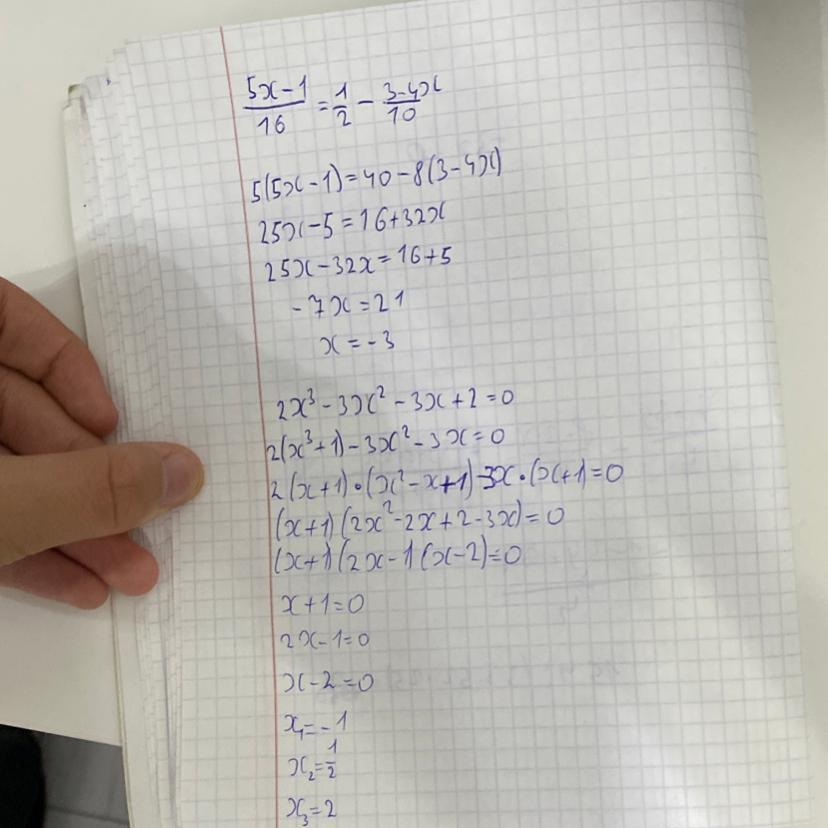 5x-1/16 = 1/2 - 3-4x/10
5(5x-1)=40-8(3-4x)
25x-5=16+32x
25x-32x=16+5
-7x=21
x=-3
2x³-3x²-3x+2=0
2(x³+1)-3x²-3x=0
2(x+1)•(x²-x+1)-3x•(x+1)=0
(x+1)(2x²-2x+2-3x)=0
(x+1)(2x-1)(x-2)=0
x+1=0
2x-1=0
x-2=0
x₁=-1
x₂=1/2
x₃=2